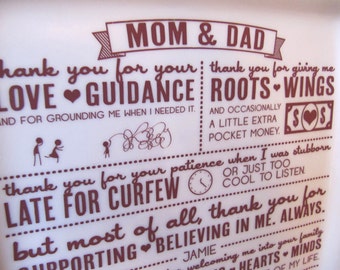 MOM & DAD
thank you for your
LOVE ♥ GUIDANCE
AND FOR GROUNDING ME WHEN I NEEDED IT.
thank you for giving me
ROOTS ♥ WINGS
AND OCCASIONALLY
A LITTLE EXTRA
POCKET MONEY.
$ ♥ $
thank you for your patience when I was stubborn
LATE FOR CURFEW
OR JUST TOO
COOL TO LISTEN.
but most of all, thank you for
SUPPORTING ♥ BELIEVING IN ME. ALWAYS.
JAMIE
welcoming me into your family
HEARTS ♥ MINDS